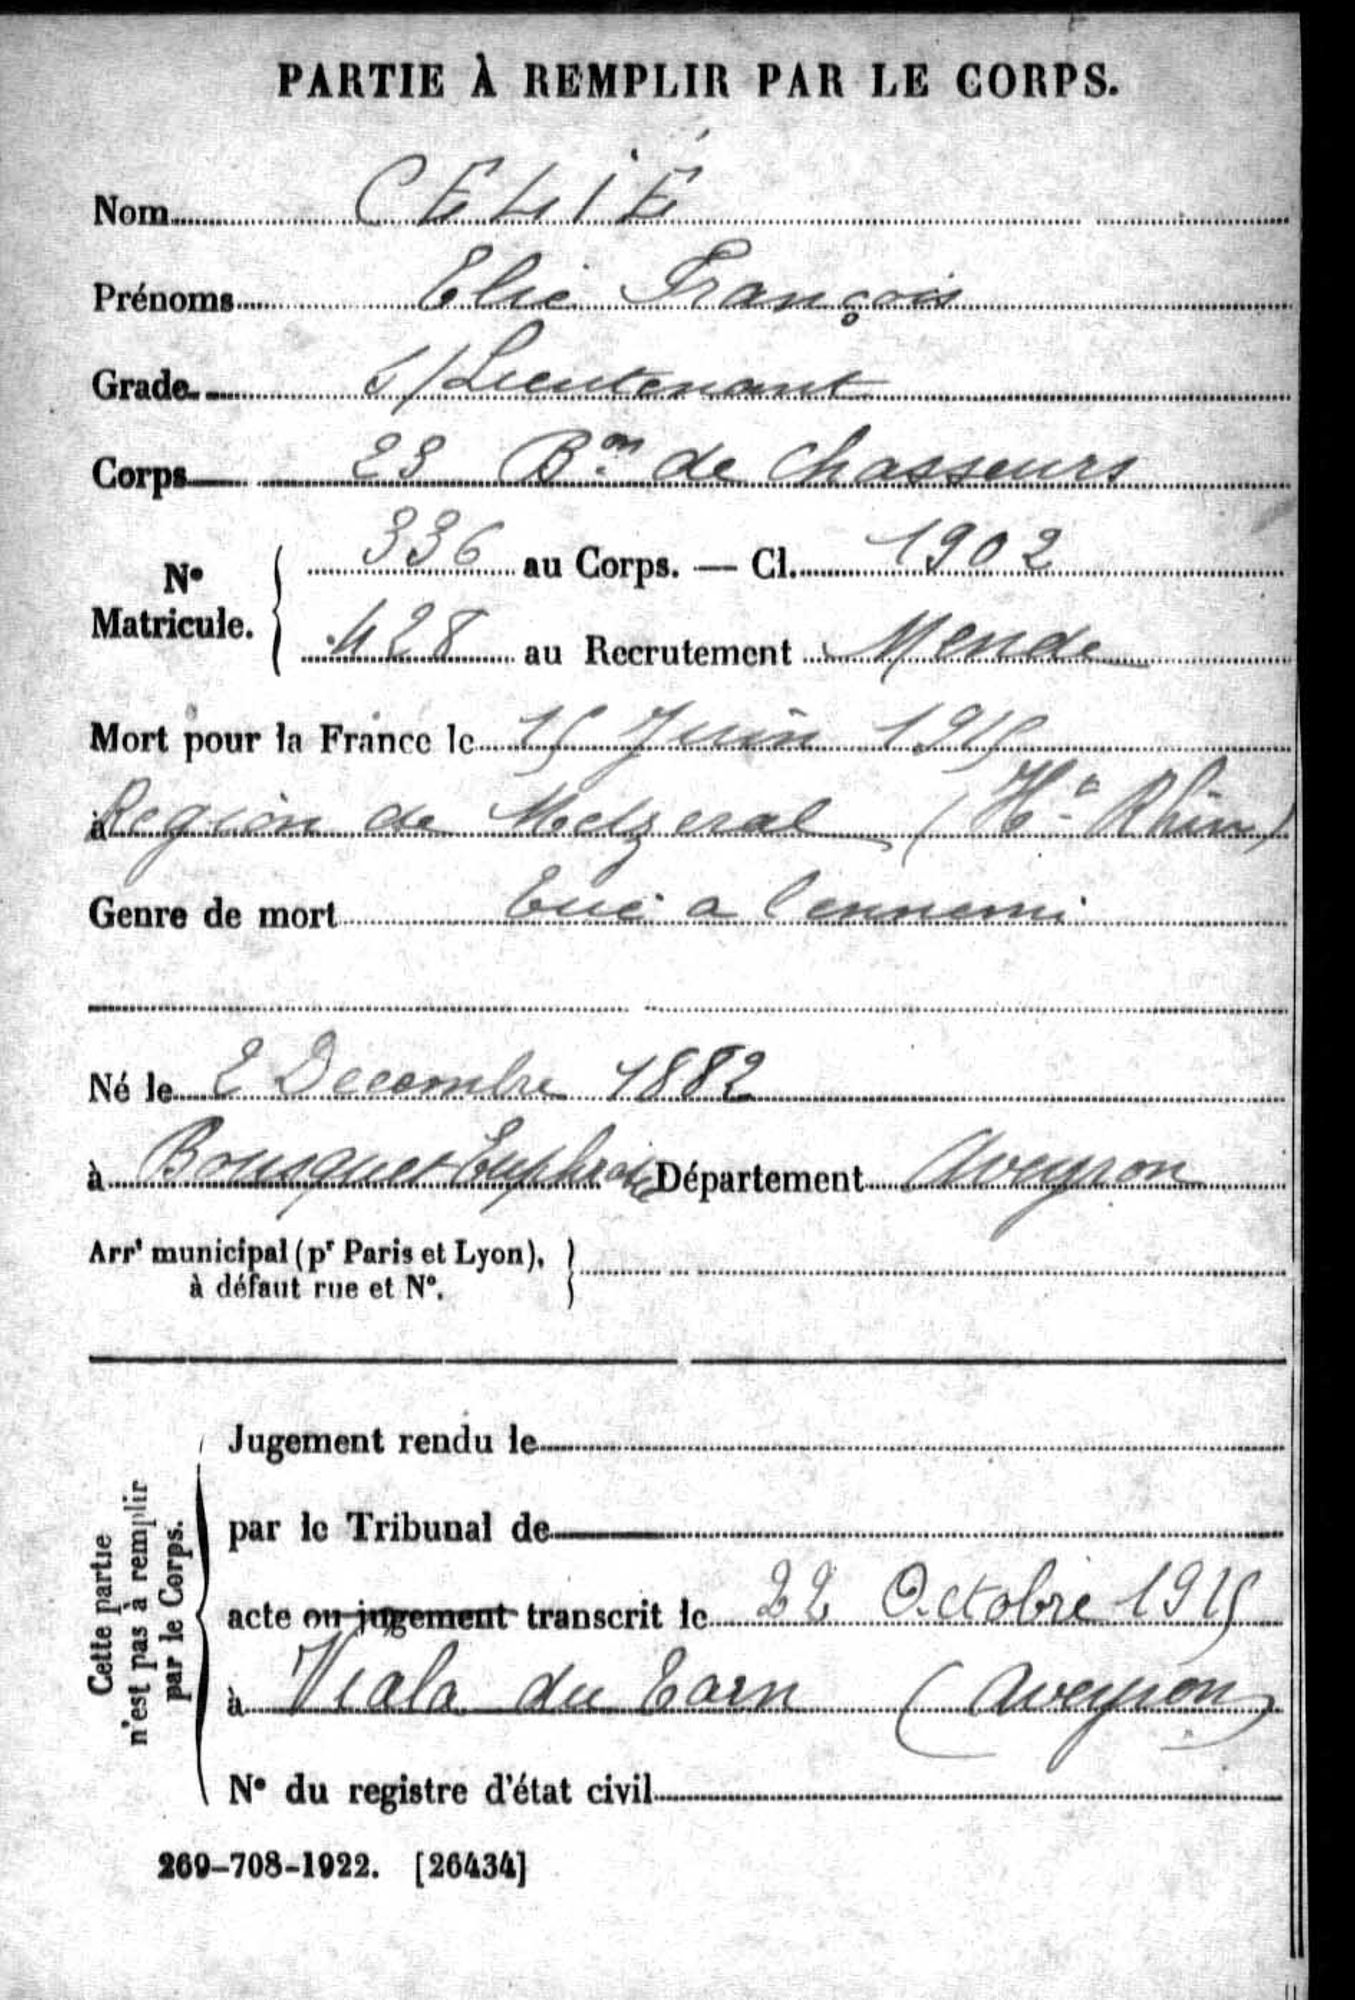 PARTIE À REMPLIR PAR LE CORPS.
Nom CELIÉ
Prénoms Elie François
Grade S/Lieutenant
Corps 23 Bon de Chasseurs
No Matricule. { 336 au Corps. — Cl. 1902
428 au Recrutement Mende
Mort pour la France le 15 Juin 1915
à Region de Metzeral (Hte Rhin)
Genre de mort tué a l'ennemi
Né le 2 Decembre 1882
à Bousquet Département Aveyron
Arrt municipal (pr Paris et Lyon), }
à défaut rue et No.
Cette partie
n'est pas à remplir
par le Corps.
Jugement rendu le
par le Tribunal de
acte ou jugement transcrit le 22 Octobre 1915
à Viala du Tarn (Aveyron)
No du registre d'état civil
269-708-1922. [26434]